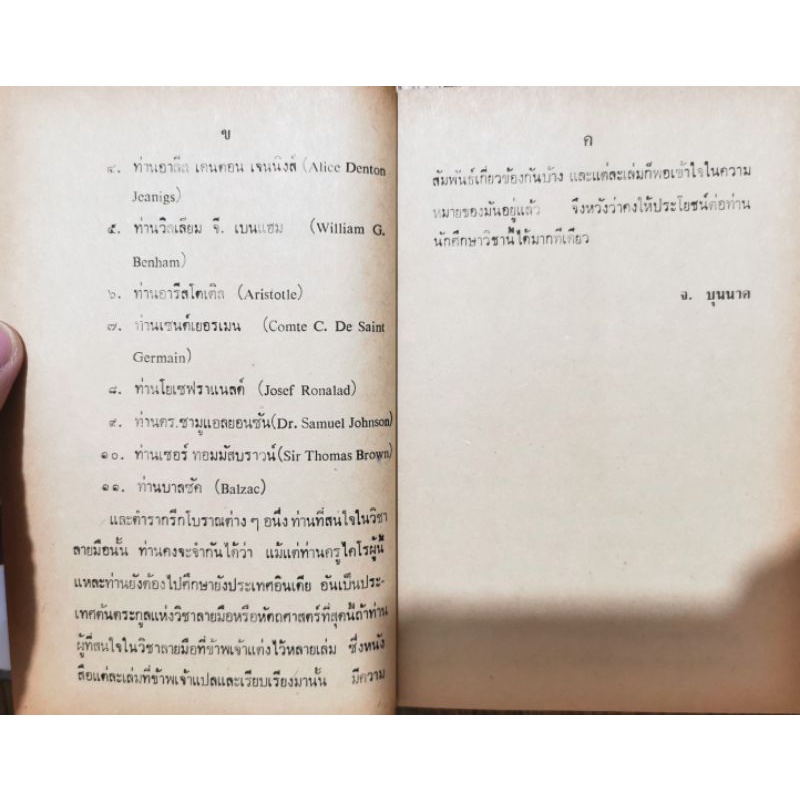 ข
๔. ท่านอาลิส เดนตอน เจนนิงส์ (Alice Denton
Jeanigs)
๕. ท่านวิลเลียม จี. เบนแฮม (William G.
Benham)
๖. ท่านอาริสโตเติล (Aristotle)
๗. ท่านเซนต์เยอรเมน (Comte C. De Saint
Germain)
๘. ท่านโยเซฟราแนลด์ (Josef Ronalad)
๙. ท่านดร.ซามูแอลยอนซัน(Dr. Samuel Johnson)
๑๐. ท่านเซอร์ ทอมมัสบราวน์(Sir Thomas Brown)
๑๑. ท่านบาลซัค (Balzac)
และตำรากรีกโบราณต่าง ๆ อนึ่ง ท่านที่สนใจในวิชา
ลายมือนั้น ท่านคงจะจำกันได้ว่า แม้แต่ท่านครูไคโรผู้นี้
แหละท่านยังต้องไปศึกษายังประเทศอินเดีย อันเป็นประ-
เทศต้นตระกูลแห่งวิชาลายมือหรือหัตถศาสตร์ที่สุดนี้ถ้าท่าน
ผู้ที่สนใจในวิชาลายมือที่ข้าพเจ้าแต่งไว้หลายเล่ม ซึ่งหนัง
สือแต่ละเล่มที่ข้าพเจ้าแปลและเรียบเรียงมานั้น มีความ
ค
สัมพันธ์เกี่ยวข้องกันบ้าง และแต่ละเล่มก็พอเข้าใจในความ
หมายของมันอยู่แล้ว จึงหวังว่าคงให้ประโยชน์ต่อท่าน
นักศึกษาวิชานี้ได้มากทีเดียว
จ. บุนนาค